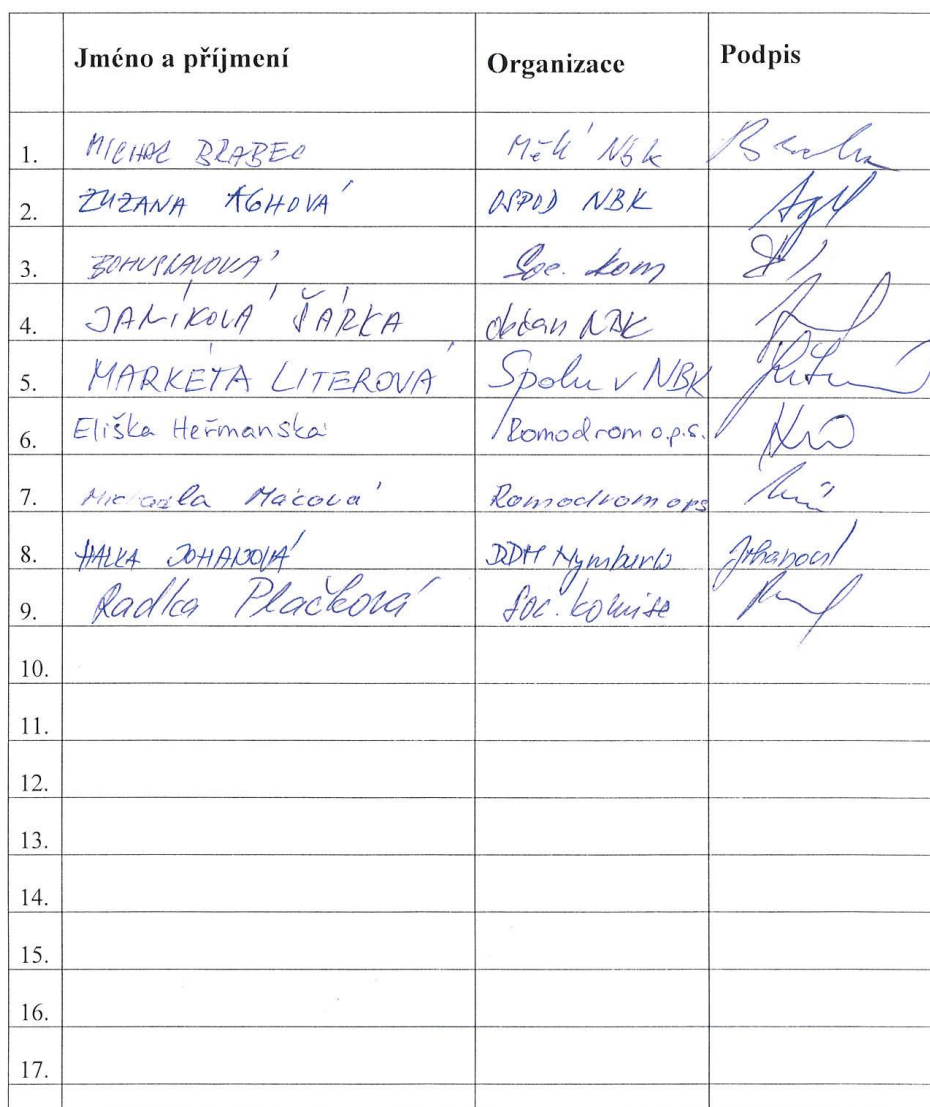 Jméno a příjmení Organizace Podpis
1. MICHAL BRABEC MěÚ Nbk
2. ZUZANA AGHOVÁ OSPOD NBK
3. BOHUSLAVOVÁ Soc. kom
4. JANÍKOVÁ ŠÁRKA občan NBK
5. MARKÉTA LITEROVÁ Spolu v NBK
6. Eliška Heřmanská Romodrom o.p.s.
7. Michaela Macová Romodrom ops
8. HALKA JOHANOVÁ DDM Nymburk Johanová
9. Radka Plačková Soc. komise
10.
11.
12.
13.
14.
15.
16.
17.